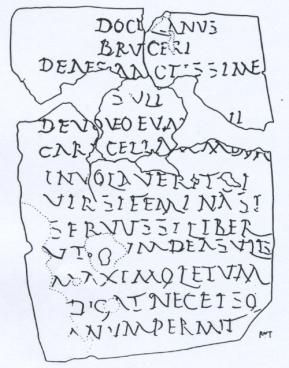 DOCILIANVS
BRVCERI
DEAE SANCTISSIME
SVLI
DEVOVEO EVM
CARACELLAM MEAM
INVOLAVERIT SI
VIR SI FEMINA SI
SERVVS SI LIBER
VT VM DEA SVLIS
MAXIMO LETVM
DIGAT NEC EI SO
PERMIT
RMT